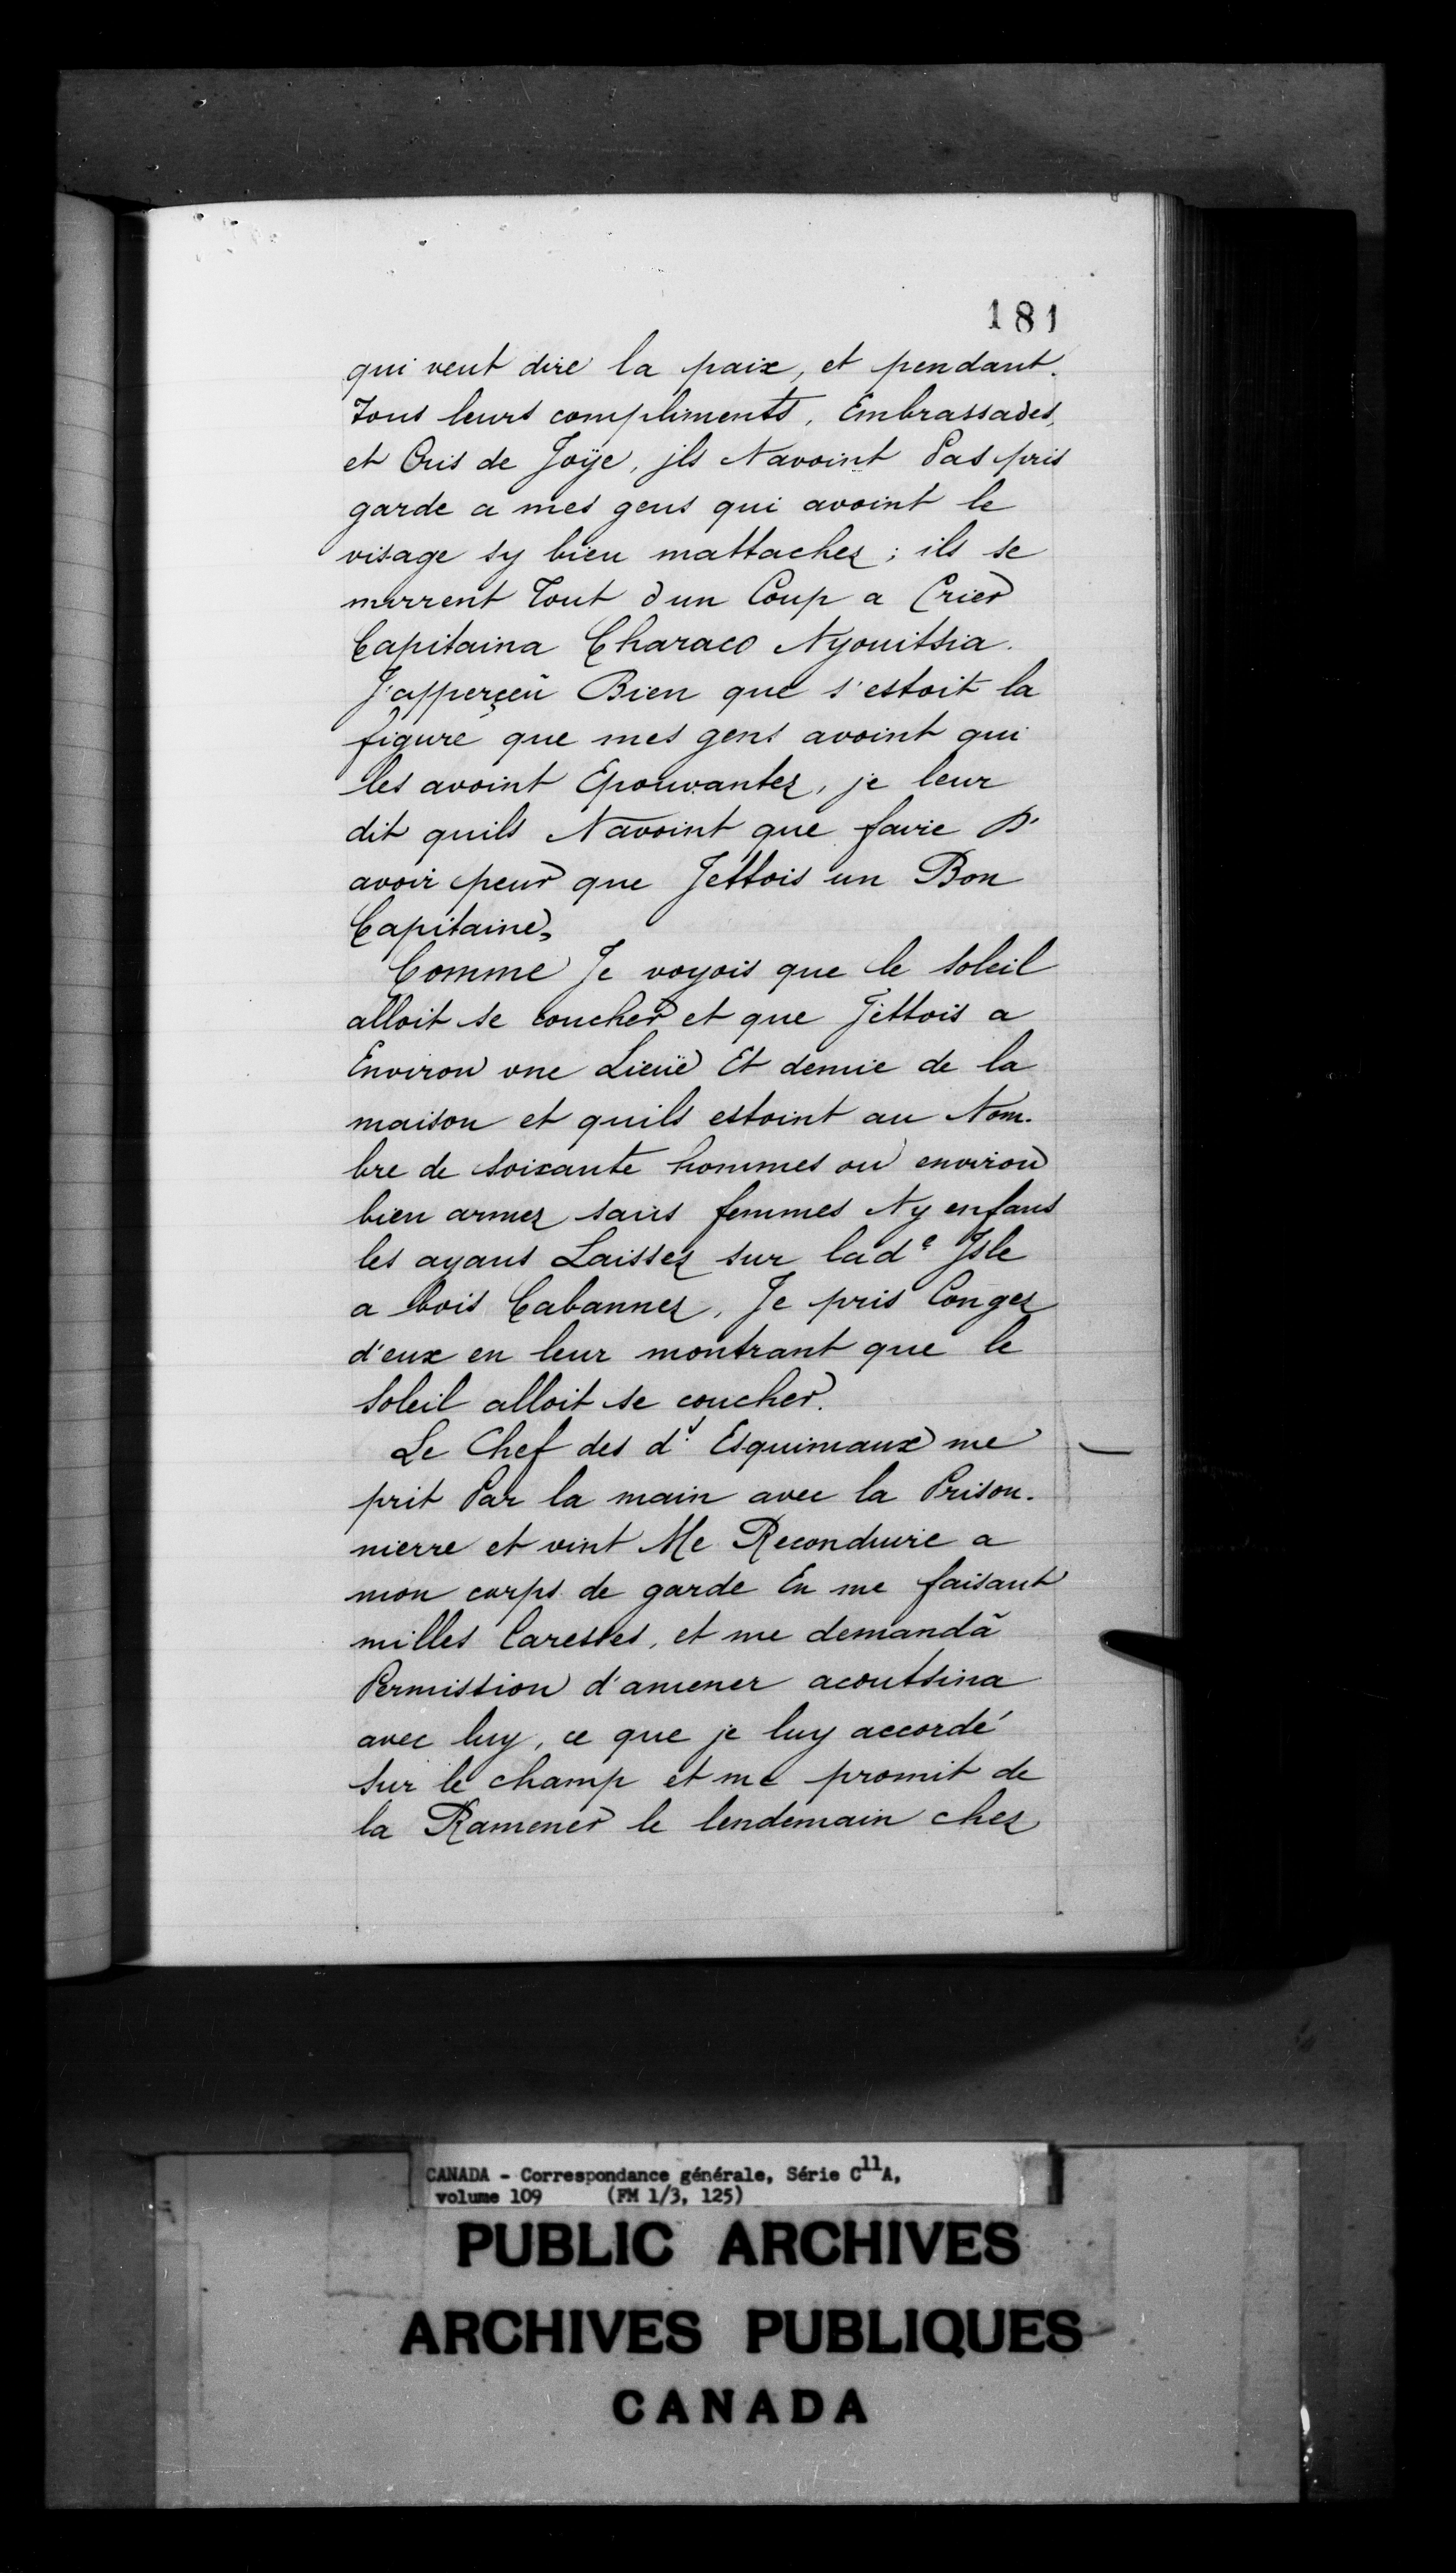 181
qui veut dire la paix, et pendant.
Tous leurs compliments, Embrassades,
et Cris de Joÿe, jls Navoint Pas pris
garde a mes gens qui avoint le
visage sy bien mattachez ; ils se
mirrent Tout d'un Coup a Crier
Capitaina Characo Nyouitsia.
J'apperçeu Bien que s'estoit la
figure que mes gens avoint qui
les avoint Epouvantez, je leur
dit quils Navoint que faire D'
avoir peur que Jettois un Bon
Capitaine,
Comme Je voyois que le soleil
alloit se coucher et que Jettois a
Environ vne Lieuë Et demie de la
maison et quils estoint au Nom-
bre de soixante hommes ou environ
bien armez sans femmes Ny enfans
les ayans Laissez sur lad.e Isle
a bois Cabannez, Je pris Congez
d'eux en leur montrant que le
soleil alloit se coucher.
Le Chef des d.s Esquimaux me
prit Par la main avec la Prison-
nierre et vint Me Reconduire a
mon corps de garde En me faisant
milles Caresses, et me demandá
Permission d'amener acoutsina
avec luy, ce que je luy accordé
sur le champ et me promit de
la Ramener le lendemain chez
CANADA - Correspondance générale, Série C11A,
volume 109 (FM 1/3, 125)
PUBLIC ARCHIVES
ARCHIVES PUBLIQUES
CANADA